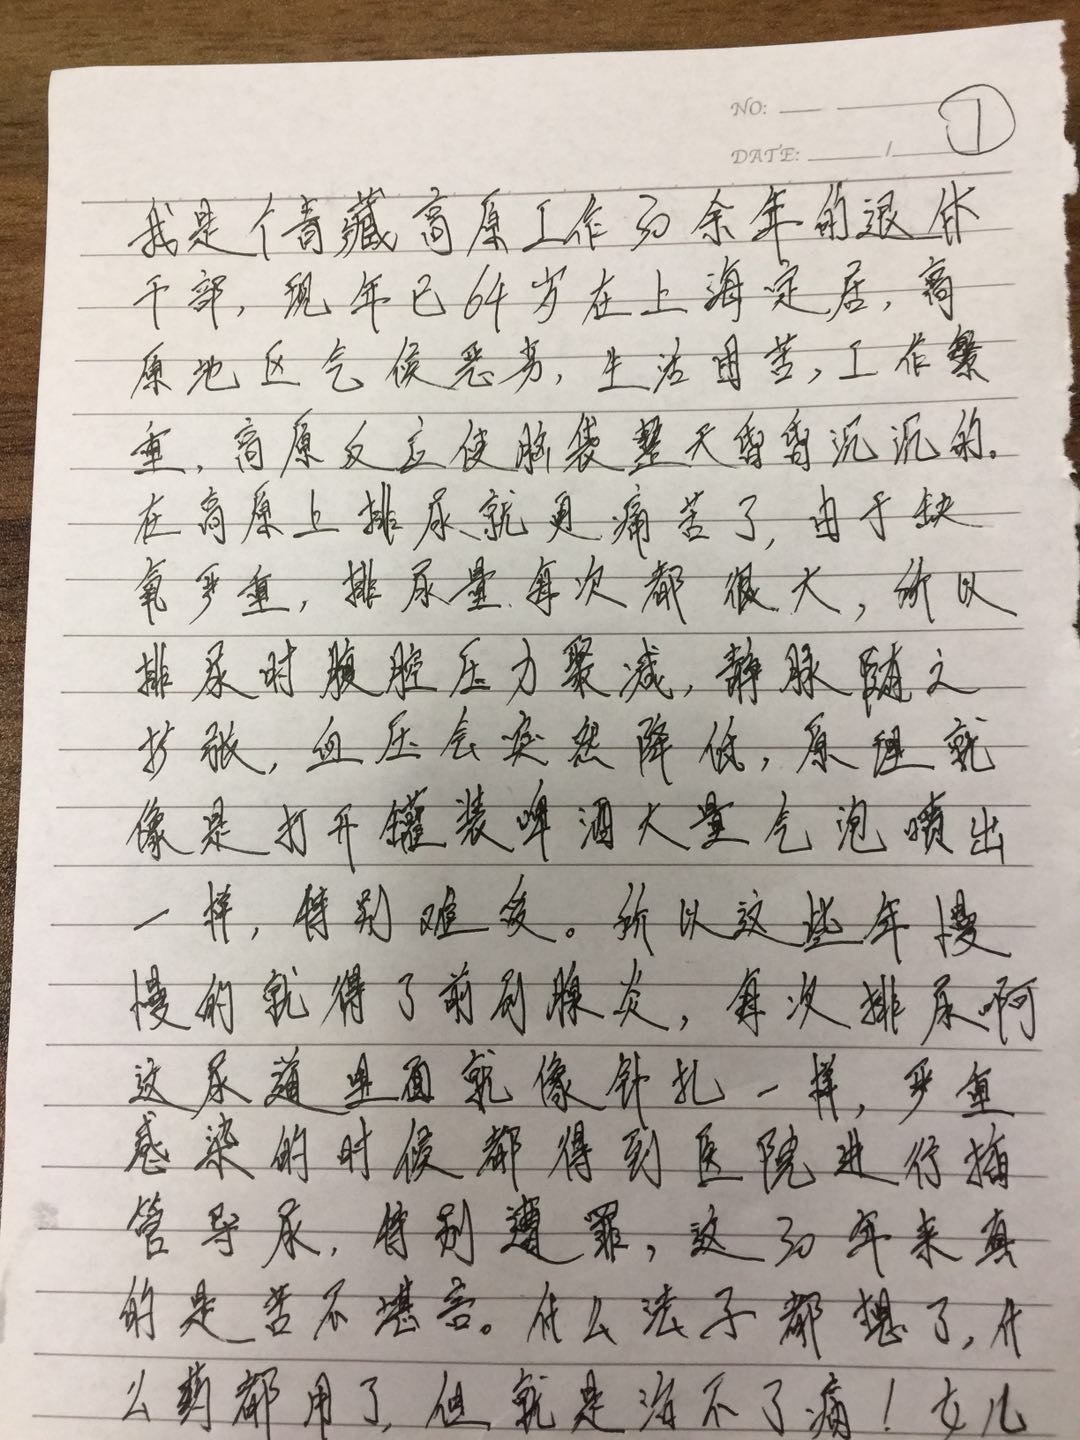 NO:
①
DATE: /
我是个青藏高原工作30余年的退休
干部，现年已64岁在上海定居，高
原地区气候恶劣，生活困苦，工作繁
重，高原反应使脑袋整天昏昏沉沉的。
在高原上排尿就更痛苦了，由于缺
氧严重，排尿量每次都很大，所以
排尿时腹腔压力聚减，静脉随之
扩张，血压会突然降低，原理就
像是打开罐装啤酒大量气泡喷出
一样，特别难受。所以这些年慢
慢的就得了前列腺炎，每次排尿啊
这尿道里面就像针扎一样，严重
感染的时候都得到医院进行插
管导尿，特别遭罪，这30年来真
的是苦不堪言。什么法子都想了，什
么药都用了，但就是治不了病！女儿